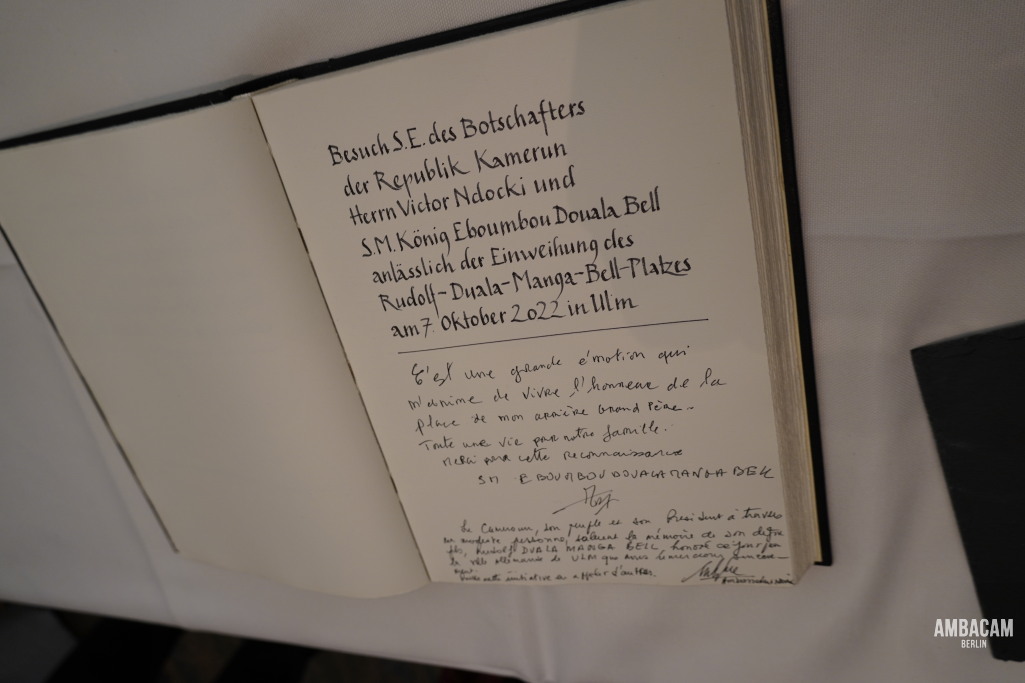 Besuch S.E. des Botschafters
der Republik Kamerun
Herrn Victor Ndocki und
S.M. König Eboumbou Douala Bell
anlässlich der Einweihung des
Rudolf-Duala-Manga-Bell-Platzes
am 7. Oktober 2022 in Ulm
C'est une grande émotion qui
m'anime de vivre l'honneur de la
place de mon arrière Grand Père..
Toute une vie pour notre famille.
Merci pour cette reconnaissance
SM EBOUMBOU DOUALA MANGA BELL
Le Cameroun, son peuple et son Président à travers
ma modeste personne, saluent la mémoire de son
fils, Rudolf DUALA MANGA BELL, honoré ce jour par
la ville allemande de ULM que nous remercions
cette initiative en d'autres.
AMBACAM
BERLIN